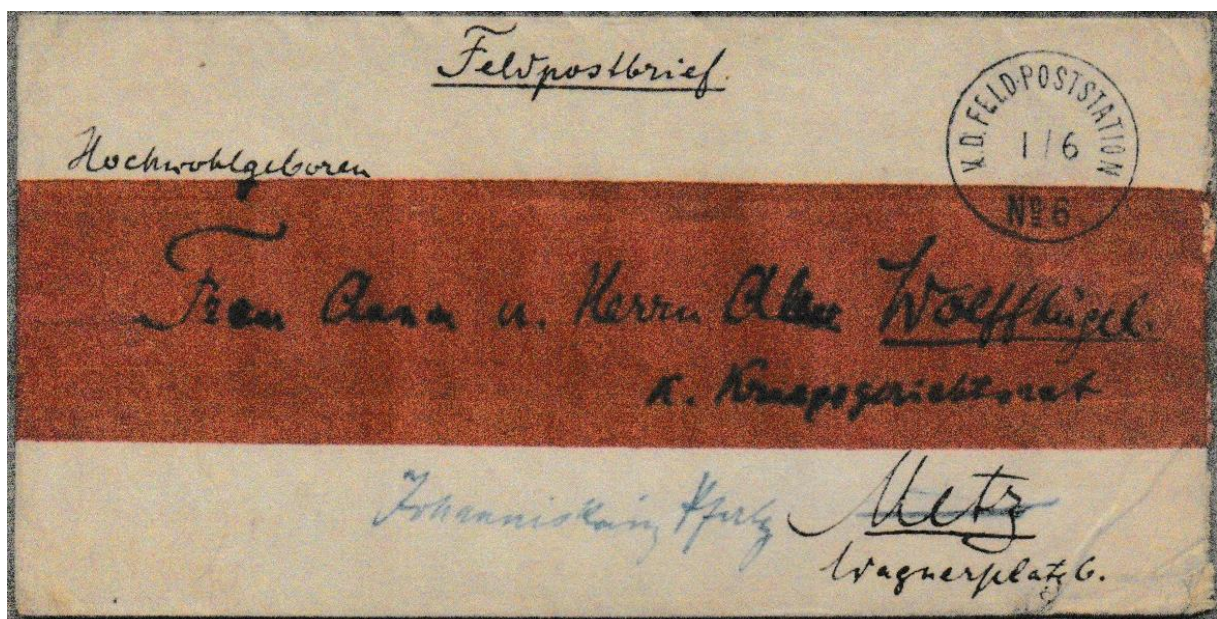 Feldpostbrief.
K.D. FELD-POSTSTATION
1/6
Nº 6
Hochwohlgeboren
Frau Anna u. Herrn Wolffhügel.
K. Kriegsgerichtsrat
Johanniskreuz Pfalz Metz
Wagnerplatz 6.